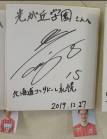 光が丘学園さんへ
'15
北海道コンサドーレ札幌
2019.12.27